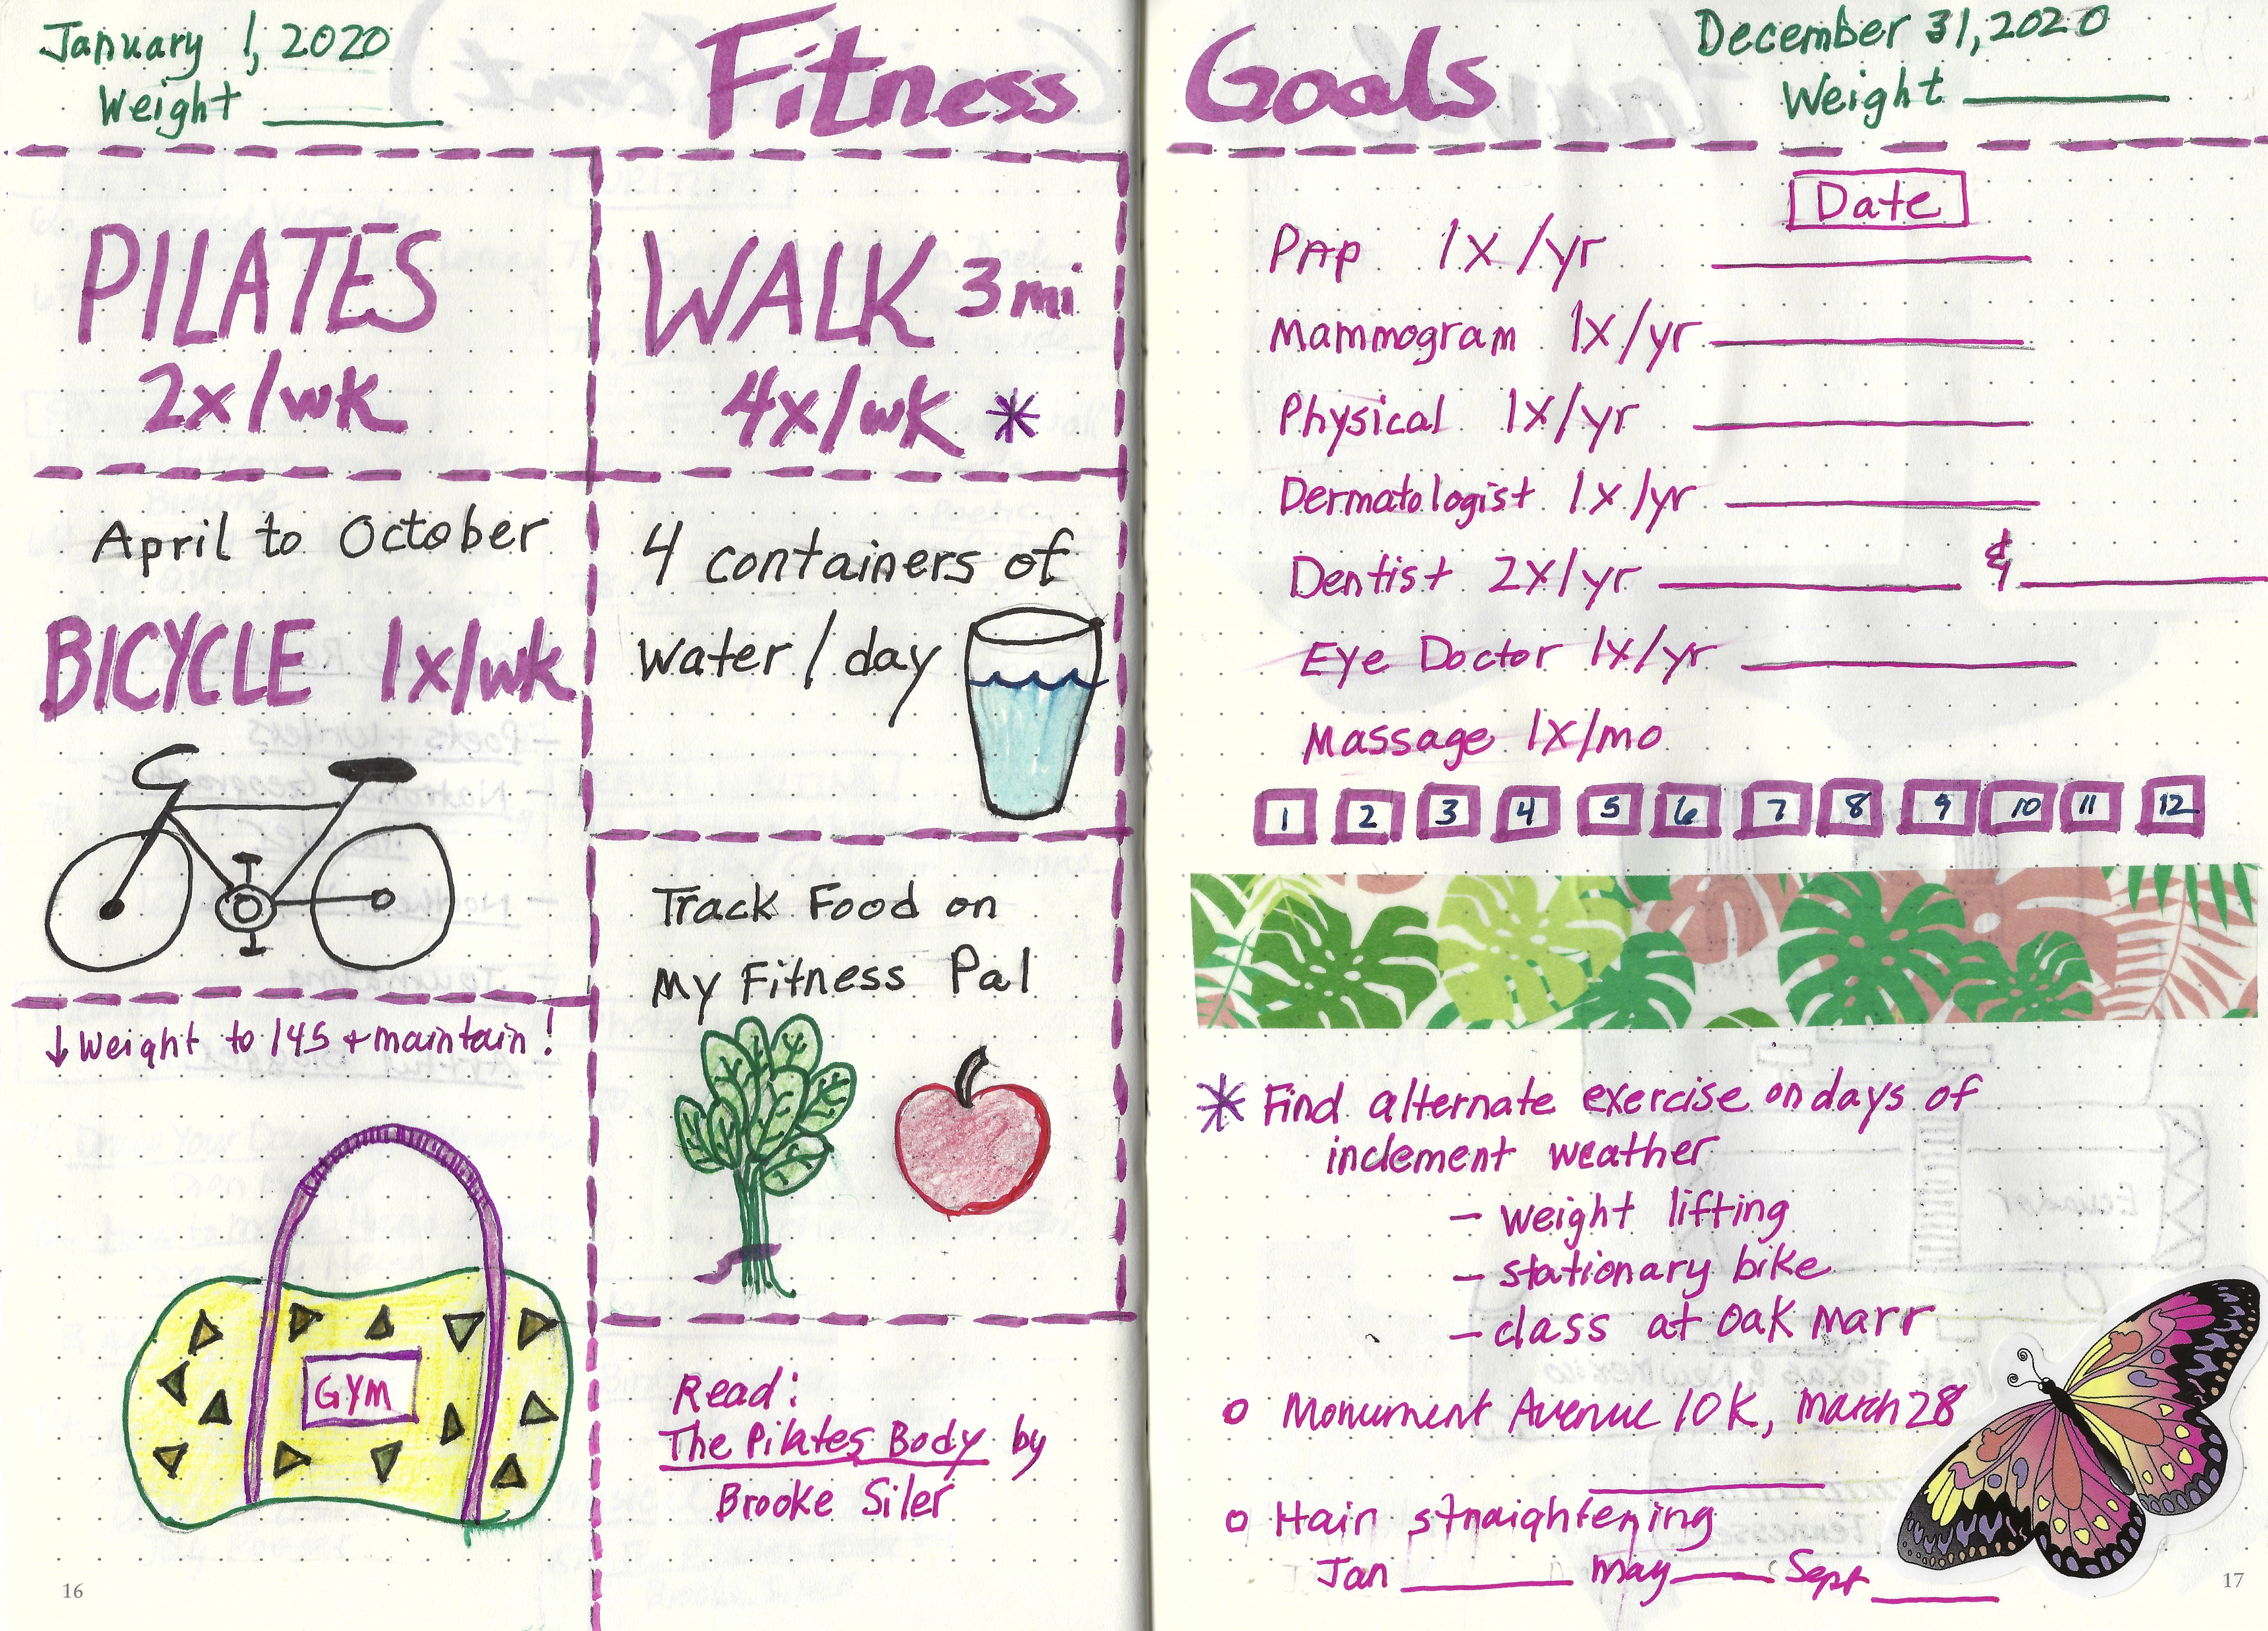 January 1, 2020
Weight
Fitness
Goals
December 31, 2020
Weight
PILATES
2x/wk
WALK 3 mi
4x/wk *
April to October
BICYCLE 1x/wk
4 containers of
water/day
Track Food on
My Fitness Pal
↓ weight to 145 + maintain!
GYM
Read:
The Pilates Body by
Brooke Siler
16
Date
PAP 1x/yr
Mammogram 1x/yr
Physical 1x/yr
Dermatologist 1x/yr
Dentist 2x/yr &
Eye Doctor 1x/yr
Massage 1x/mo
1 2 3 4 5 6 7 8 9 10 11 12
* Find alternate exercise on days of
inclement weather
- weight lifting
- stationary bike
- class at Oak Marr
o Monument Avenue 10K, March 28
o Hair straightening
Jan May Sept
17